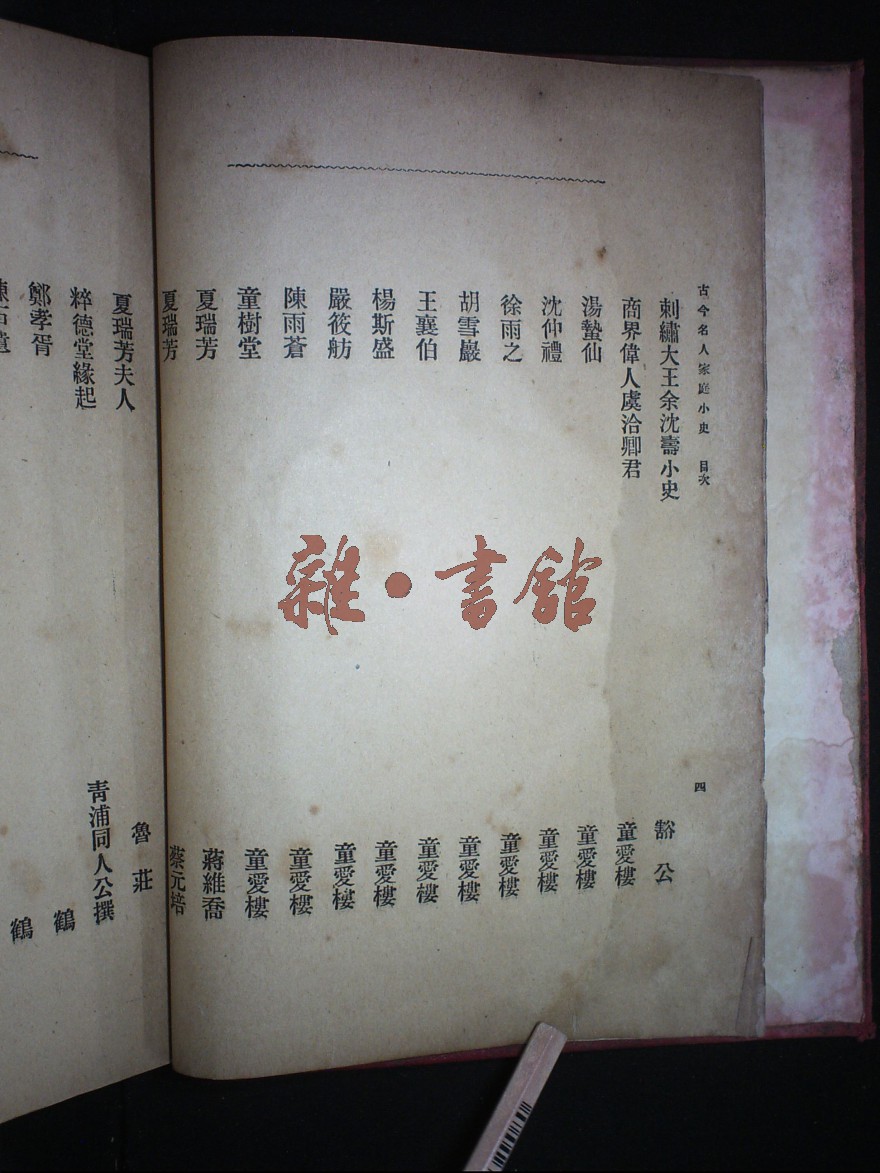 古今名人家庭小史 目次 四
刺繡大王余沈壽小史 豁公
商界偉人虞洽卿君 童愛樓
湯蟄仙 童愛樓
沈仲禮 童愛樓
徐雨之 童愛樓
胡雪巖 童愛樓
王襄伯 童愛樓
楊斯盛 童愛樓
嚴筱舫 童愛樓
陳雨蒼 童愛樓
童樹堂 童愛樓
夏瑞芳 蔣維喬
夏瑞芳 蔡元培
夏瑞芳夫人 魯莊
粹德堂緣起 青浦同人公撰
鄭孝胥 鶴
鶴
雜·書館